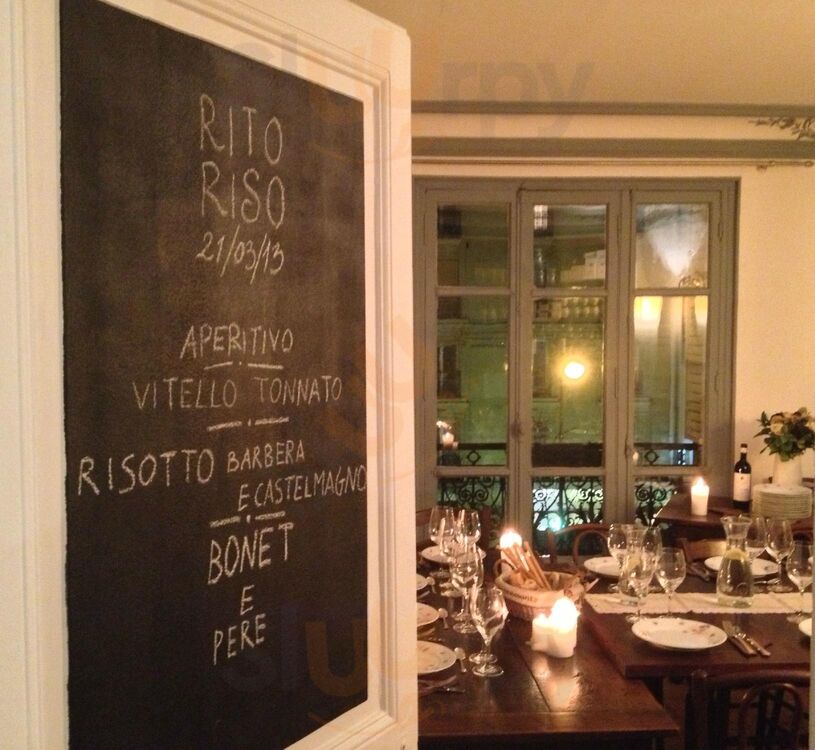 RITO
RISO
21/03/13
APERITIVO
VITELLO TONNATO
RISOTTO BARBERA
E CASTELMAGNO
BONET
E
PERE
slurpy